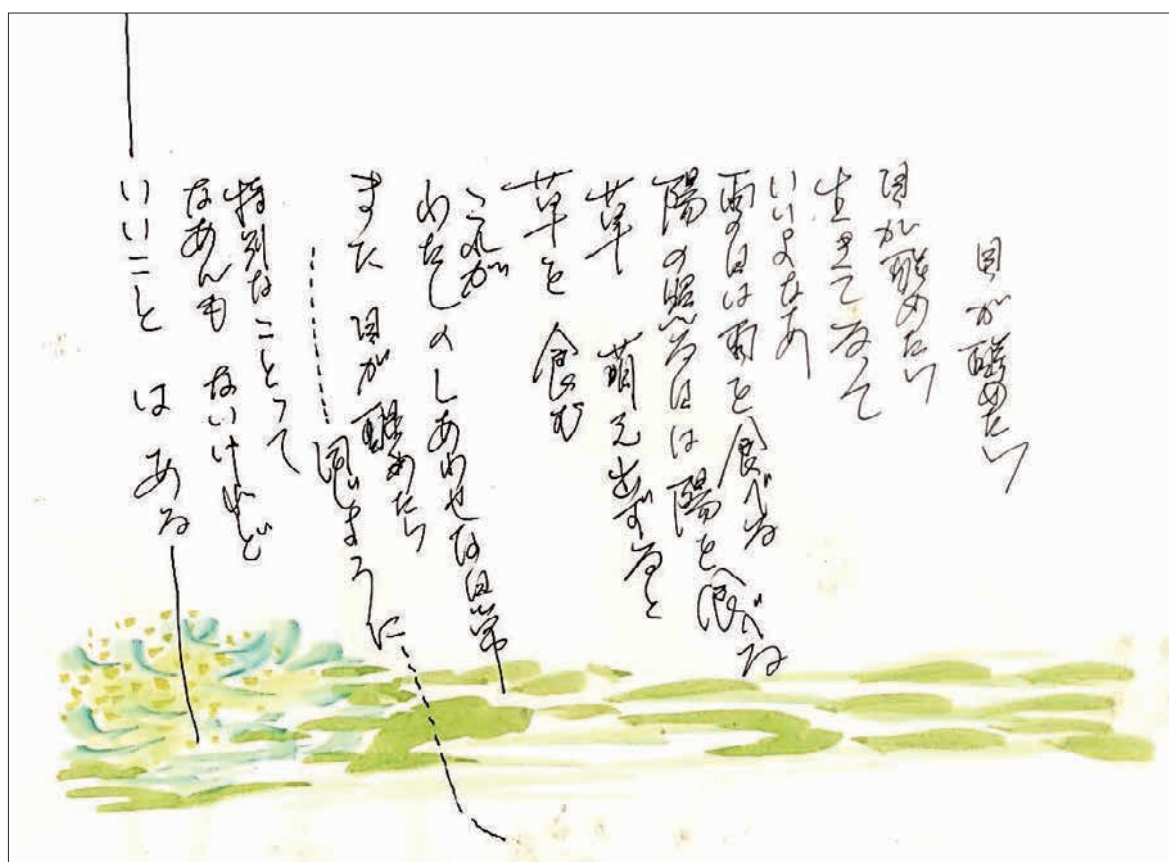 目が醒めたら
目が醒めたら
生きてゐて
いいよなあ
雨の日は雨を食べる
陽の照る日は陽を食べる
草 萌え出ずると
草を 食む
これが
わたしのしあわせな日常
また 目が醒めたら
同じように
特別なことって
なあんも ないけれど
いいこと は ある